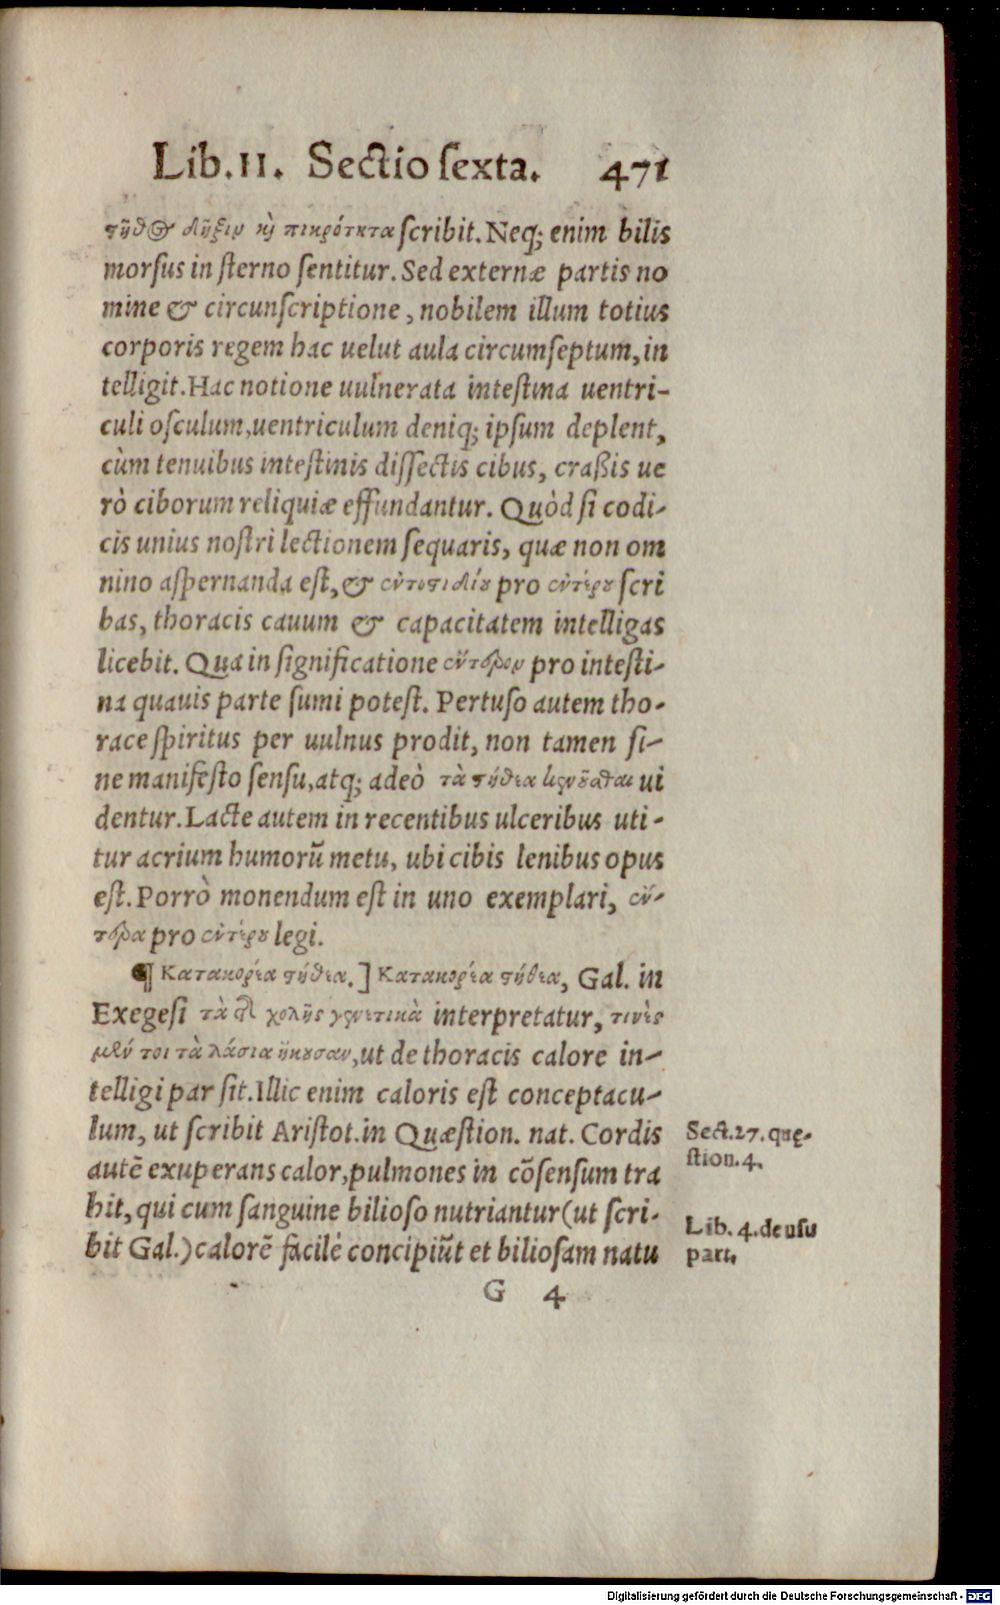 Lib. II. Sectio sexta. 471
στῆθος δῆξιν καὶ πικρότητα scribit. Neq; enim bilis
morsus in sterno sentitur. Sed externæ partis no
mine & circunscriptione, nobilem illum totius
corporis regem hac uelut aula circumseptum, in
telligit. Hac notione uulnerata intestina uentri-
culi osculum, uentriculum deniq; ipsum deplent,
cùm tenuibus intestinis dissectis cibus, craßis ue
rò ciborum reliquiæ effundantur. Quòd si codi-
cis unius nostri lectionem sequaris, quæ non om
nino aspernanda est, & ἐντοσιδίου pro ἐντέρου scri
bas, thoracis cauum & capacitatem intelligas
licebit. Qua in significatione ἔντερον pro intesti-
na quauis parte sumi potest. Pertuso autem tho-
race spiritus per uulnus prodit, non tamen si-
ne manifesto sensu, atq; adeò τὰ στήθεα κενοῦσθαι ui
dentur. Lacte autem in recentibus ulceribus uti-
tur acrium humorũ metu, ubi cibis lenibus opus
est. Porrò monendum est in uno exemplari, ἔν-
τερα pro ἐντέρου legi.
¶ Κατακορέα στήθεα.] Κατακορέα στήθεα, Gal. in
Exegesi τὰ τῆς χολῆς γεννητικὰ interpretatur, τινὲς
μέν τοι τὰ λάσια ἤκουσαν, ut de thoracis calore in-
telligi par sit. Illic enim caloris est conceptacu-
lum, ut scribit Aristot. in Quæstion. nat. Cordis
autẽ exuperans calor, pulmones in cõsensum tra
hit, qui cum sanguine bilioso nutriantur (ut scri-
bit Gal.) calorẽ facilè concipiũt et biliosam natu
G 4
Sect. 27. quę-
stion. 4.
Lib. 4. de usu
part.
Digitalisierung gefördert durch die Deutsche Forschungsgemeinschaft - DFG